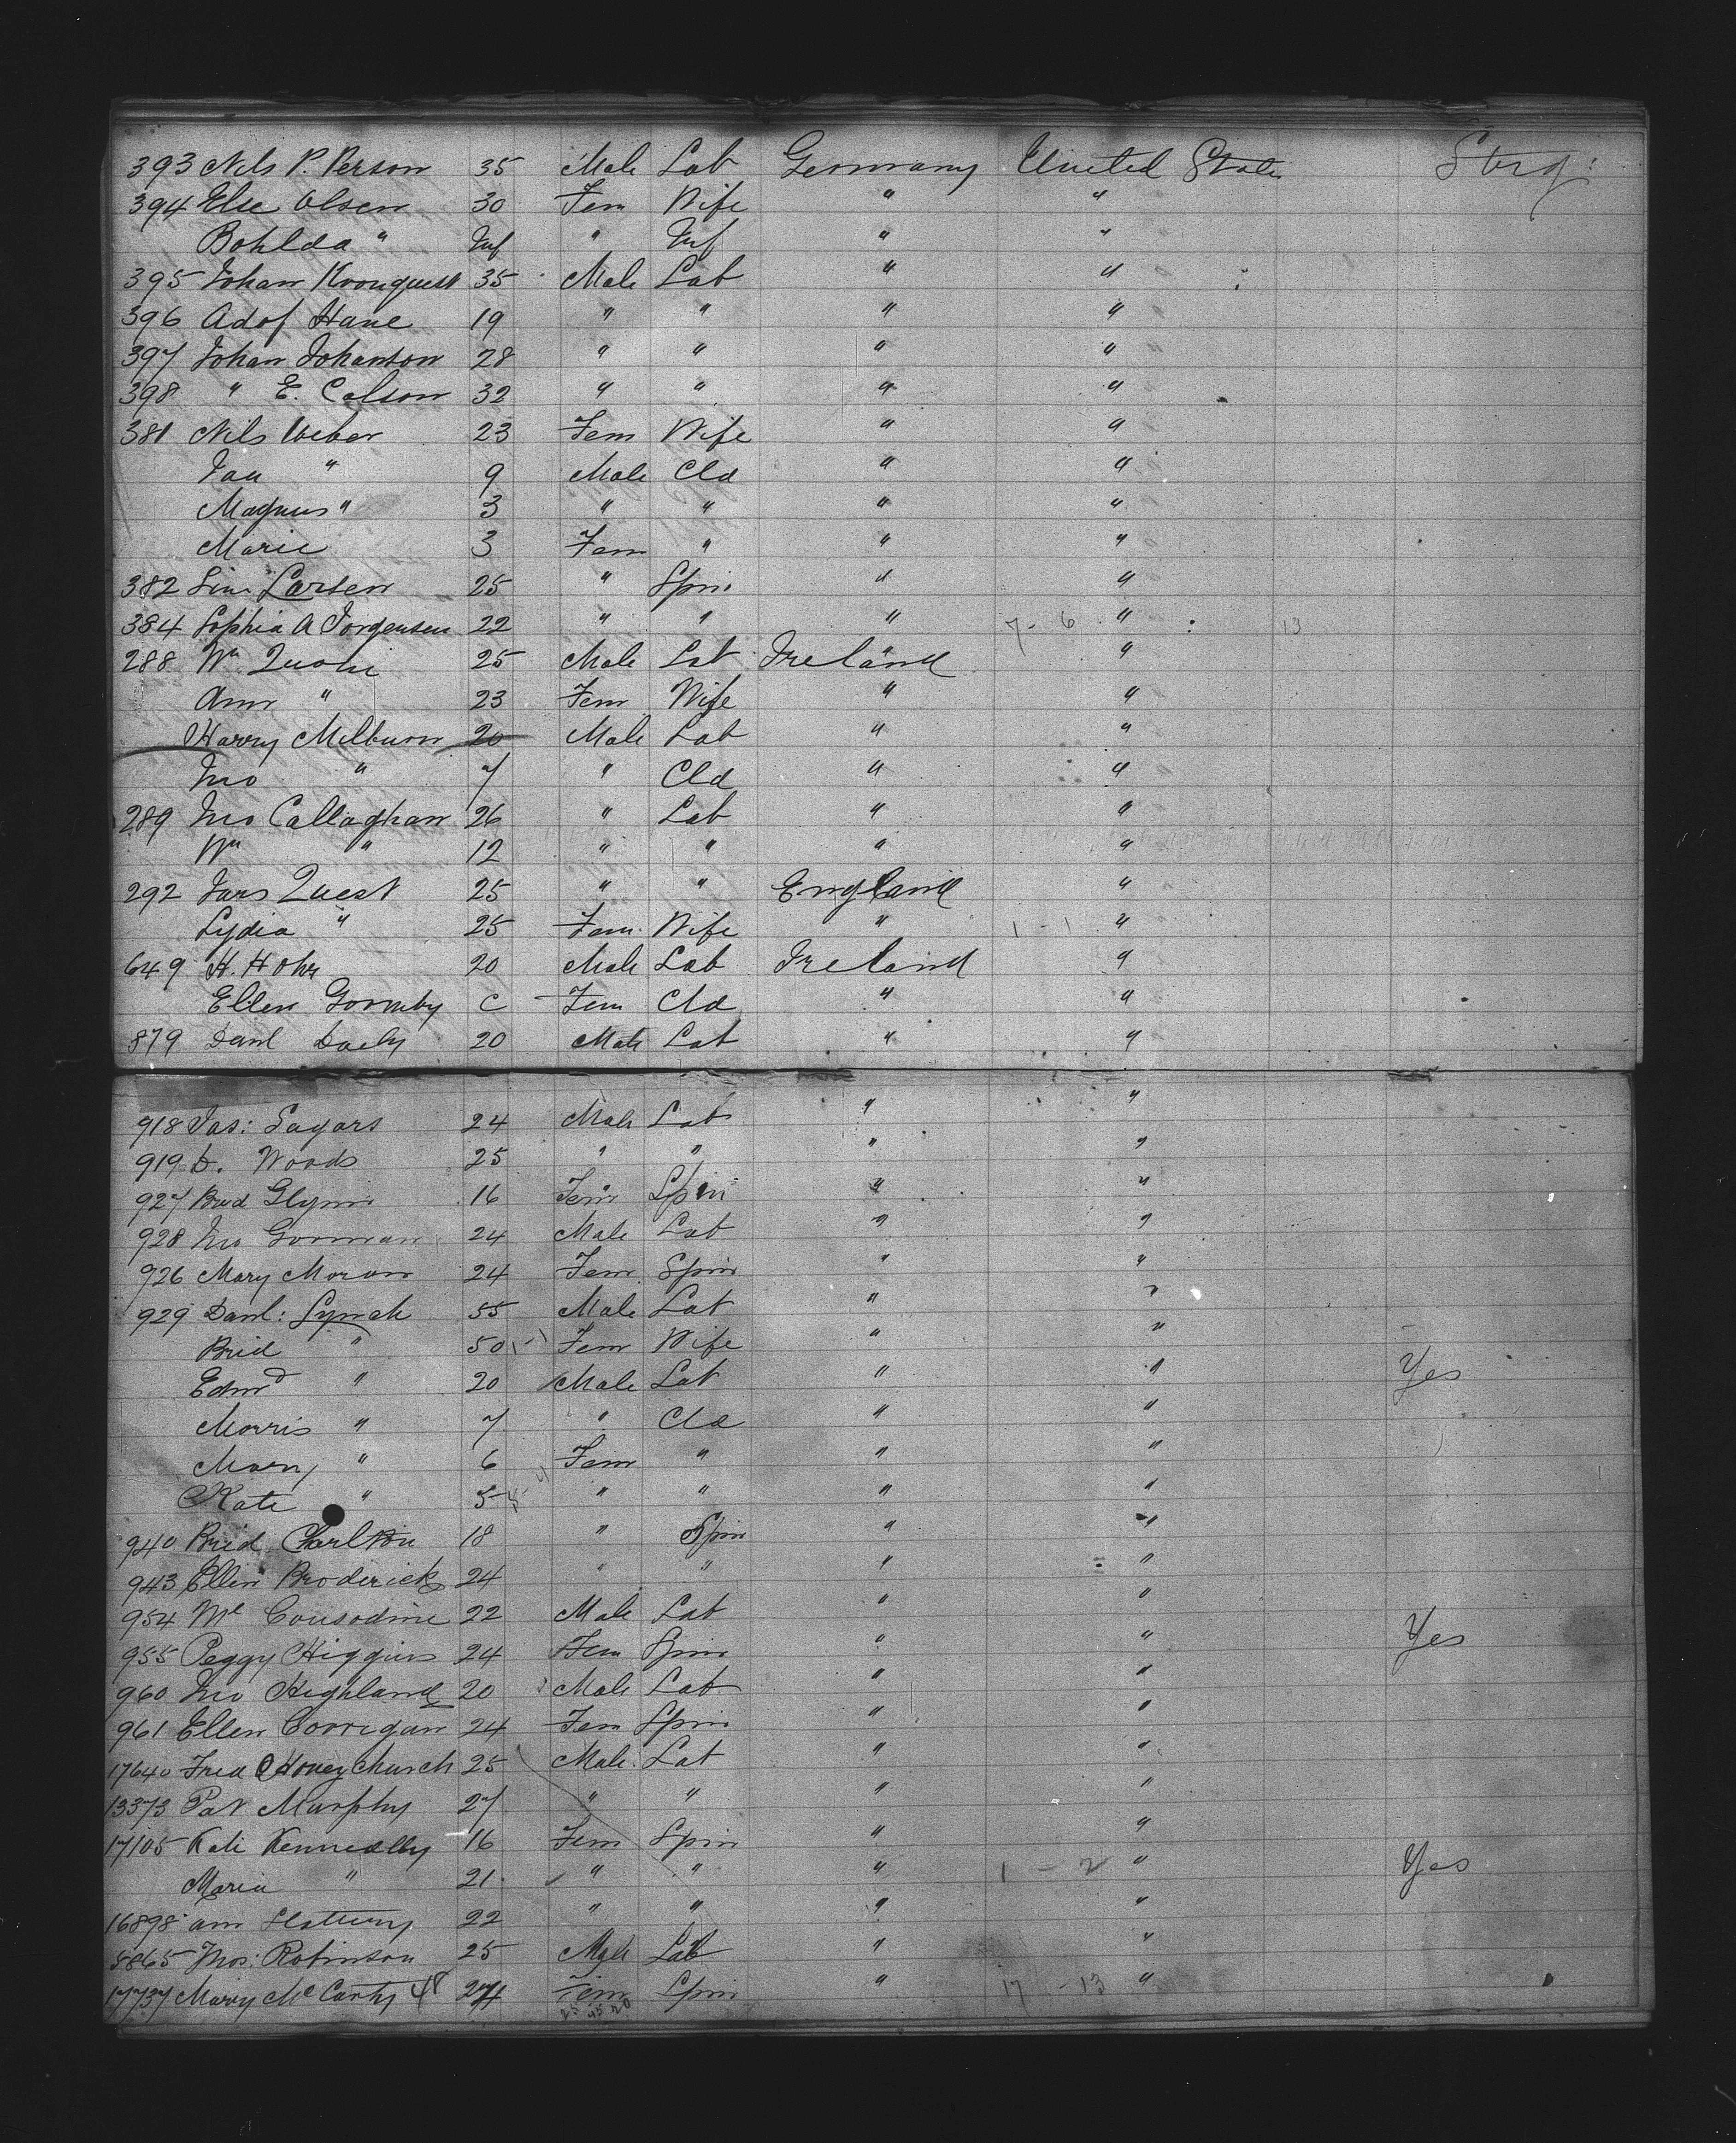 393 Nils P. Person 35 Male Lab Germany United State Strg:
394 Else Olsen 30 Fem Wife " "
Bohlda " Inf " Inf " "
395 Johan Kronquest 35 Male Lab " "
396 Adof Hane 19 " " " "
397 Johan Johanson 28 " " " "
398 " E. Colson 32 " " " "
381 Nils Weber 23 Fem Wife " "
Jan " 9 Male Cld " "
Magnus " 3 " " " "
Marie 3 Fem " " "
382 Sine Larsen 25 " Spin " "
384 Sophia A Jorgensen 22 " " " 7 - 6 " 13
288 Wm 25 Male Lab Ireland "
Ann " 23 Fem Wife " "
Harry Milburn 20 Male Lab " "
Jno " 7 " Cld " "
289 Jno Callaghan 26 " Lab " "
Wm " 12 " " " "
292 Jas Quest 25 " " England "
Lydia " 25 Fem Wife " 1 - 1 "
649 H. Hohr 20 Male Lab Ireland "
Ellen Gormby C Fem Cld " "
879 Danl Daely 20 Male Lab " "
918 Jas: Sagars 24 Male Lab " "
919 D. Woods 25 " " " "
927 Brid Glynn 16 Fem Spin " "
928 Jno Gorman 24 Male Lab " "
926 Mary Moran 24 Fem Spin " "
929 Danl: Lynch 55 Male Lab " "
Brid " 50 1-1 Fem Wife " "
Edmd " 20 Male Lab " " Yes
Morris " 7 " Cld " "
Mary " 6 Fem " " "
Kate " 5 " " " "
940 Brid Charlton 18 " Spin " "
943 Ellen Broderick 24 " " " "
954 Ml Consodine 22 Male Lab " "
955 Peggy Higgins 24 Fem Spin " " Yes
960 Jno Highland 20 Male Lab " "
961 Ellen Corrigan 24 Fem Spin " "
17640 Fred Honeychurch 25 Male Lab " "
13373 Pat Murphy 27 " " " "
17105 Kate Kennedby 16 Fem Spin " "
Maria " 21 " " " 1 - 2 " Yes
16898 Ann Slattery 22 " " " "
8865 Thos: Robinson 25 Male Lab " "
17737 Mary McCarty 48 24 Fem Spin " 17 - 13 "
25 45 20